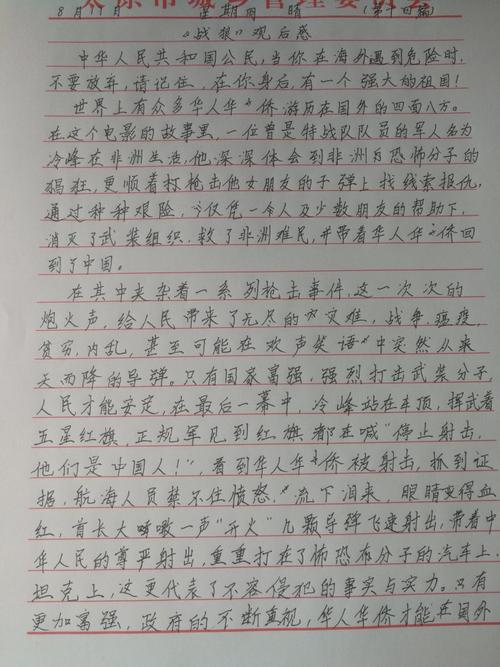 太原市城乡管理委员会
8月19日 星期六 晴 (第十四篇)
《战狼》观后感
中华人民共和国公民,当你在海外遇到危险时,
不要放弃,请记住,在你身后,有一个强大的祖国!
世界上有众多华人华侨游历在国外的四面八方。
在这个电影的故事里,一位曾是特战队队员的军人名为
冷峰在非洲生活,他深深体会到非洲与恐怖分子的
猖狂,更顺着打枪击他女朋友的子弹上找线索报仇,
通过种种艰险,仅凭一个人及少数朋友的帮助下,
消灭了武装组织,救了非洲难民,并带着华人华侨回
到了中国。
在其中夹杂着一系列枪击事件,这一次次的
炮火声,给人民带来了无尽的灾难,战争,瘟疫,
贫穷,内乱,甚至可能在欢声笑语中突然从来
天而降的导弹。只有国家富强,强烈打击武装分子,
人民才能安定,在最后一幕中,冷峰站在车顶,挥武着
五星红旗,正规军见到红旗都在喊“停止射击,
他们是中国人!”,看到华人华侨被射击,抓到证
据,航海人员禁不住愤怒,流下泪来,眼睛变得血
红,首长大嘶嗷一声“开火”几颗导弹飞速射出,带着中
华人民的尊严射出,重重打在了怖恐布分子的汽车上,
坦克上,这更代表了不容侵犯的事实与实力。只有
更加富强,政府的不断重视,华人华侨才能在国外